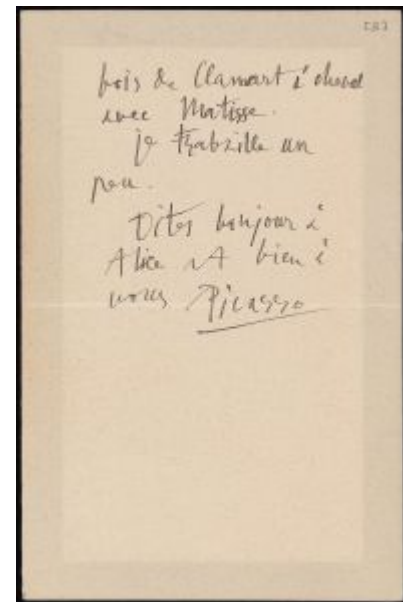 bois de Clamart à cheval
avec Matisse.
je trabaille un
peu.
Dites bonjour à
Alice et bien à
vous Picasso